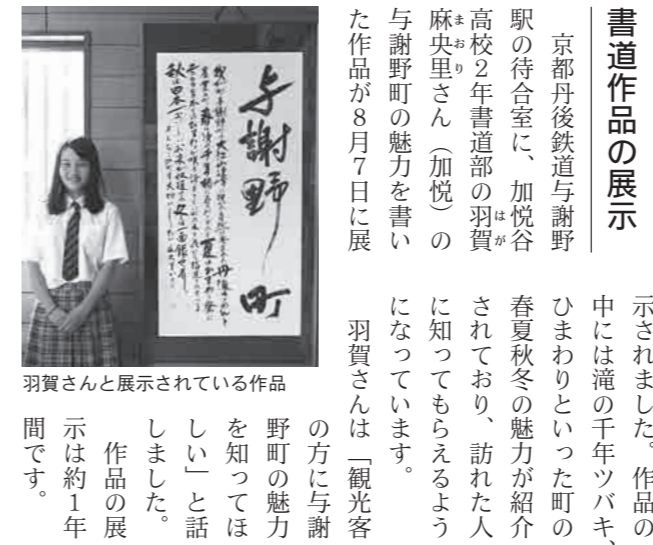 書道作品の展示
京都丹後鉄道与謝野
駅の待合室に、加悦谷
高校2年書道部の羽賀
はが
麻央里さん（加悦）の
まおり
与謝野町の魅力を書い
た作品が8月7日に展
示されました。作品の
中には滝の千年ツバキ、
ひまわりといった町の
春夏秋冬の魅力が紹介
されており、訪れた人
に知ってもらえるよう
になっています。
羽賀さんは「観光客
の方に与謝
野町の魅力
を知ってほ
しい」と話
しました。
作品の展
示は約1年
間です。
与謝野町
羽賀さんと展示されている作品